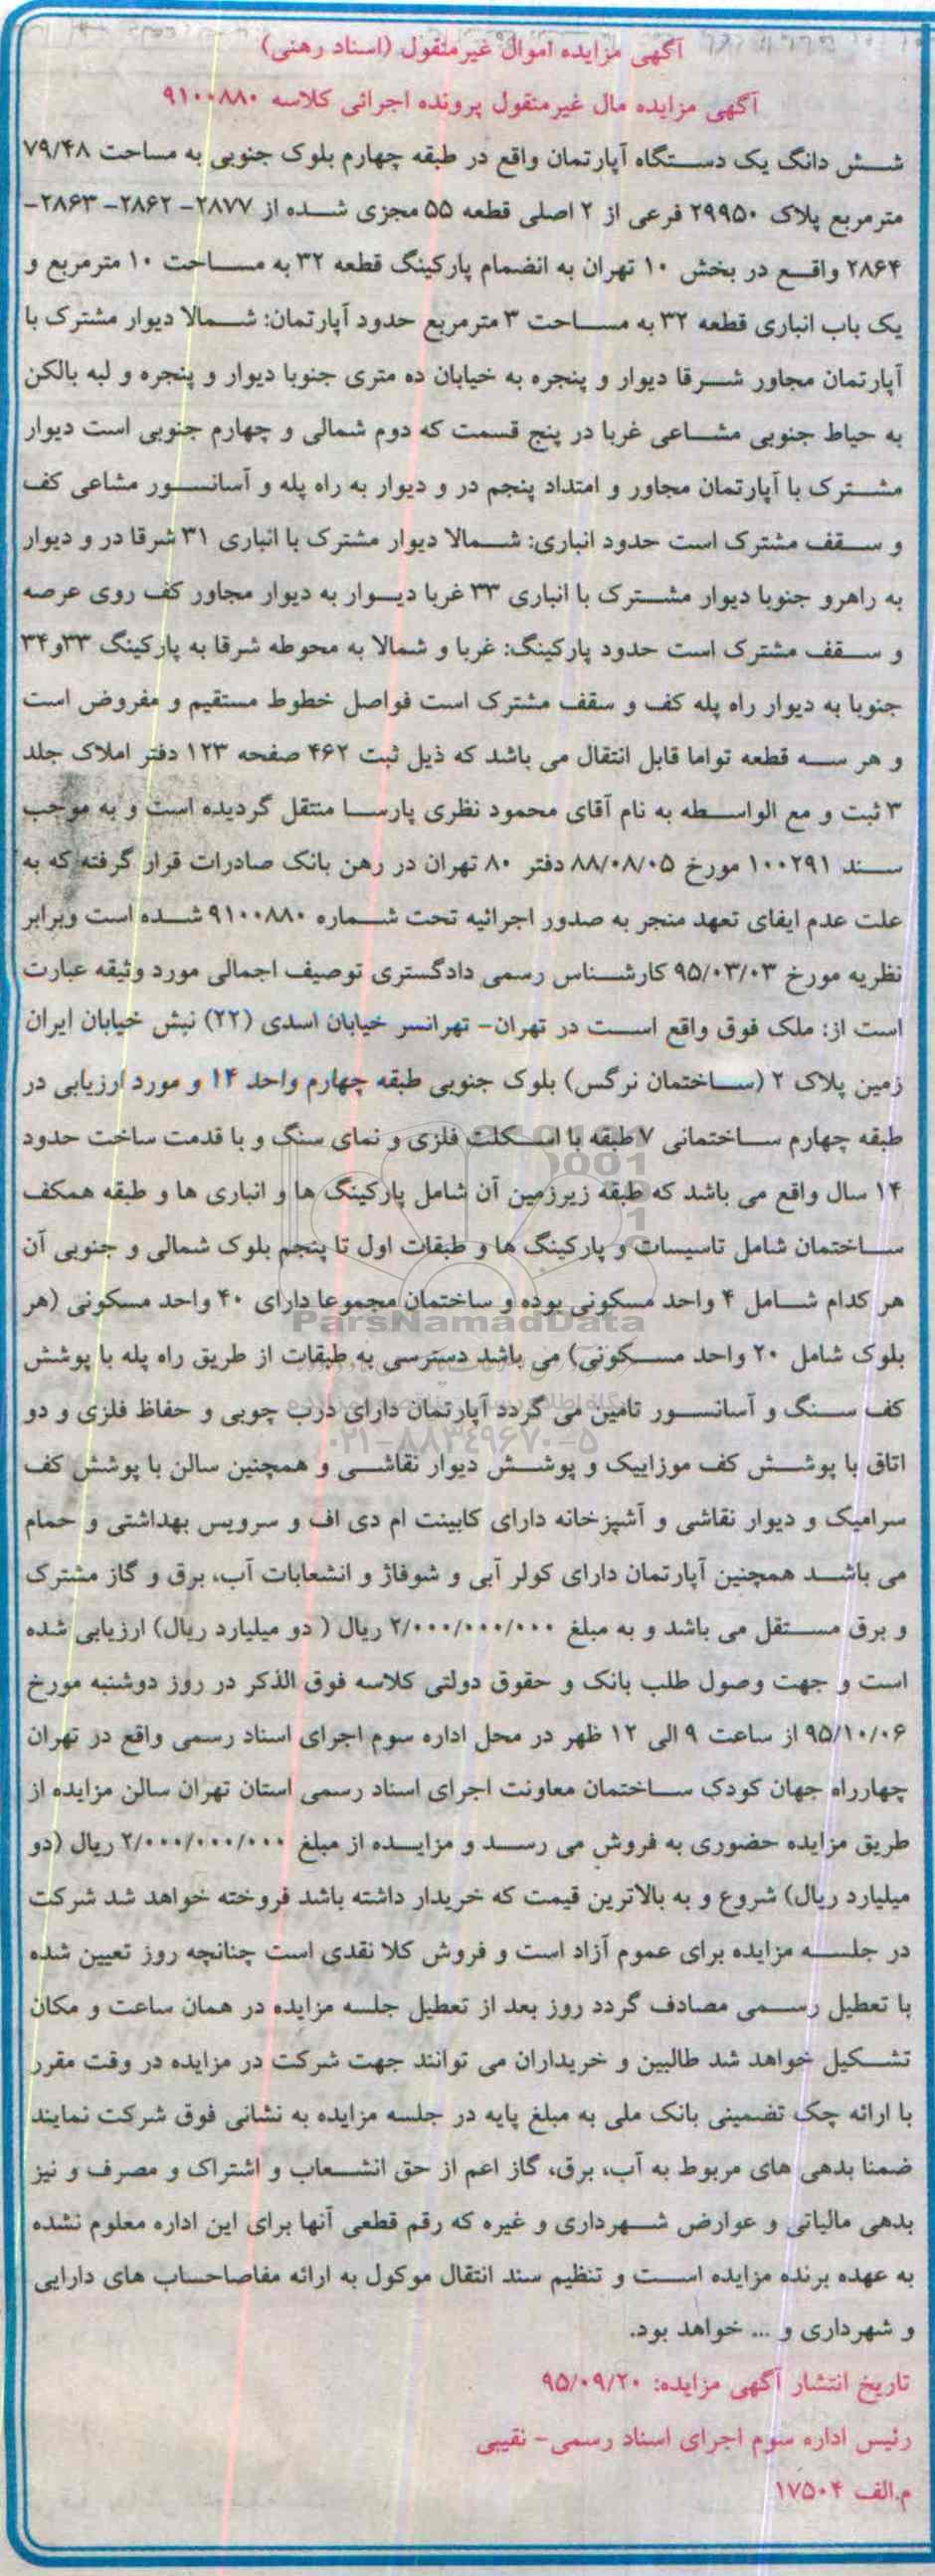 آگهی مزایده اموال غیرمنقول (اسناد رهنی)
آگهی مزایده مال غیرمنقول پرونده اجرائی کلاسه ۹۱۰۰۸۸۰
شش دانگ یک دستگاه آپارتمان واقع در طبقه چهارم بلوک جنوبی به مساحت ۷۹/۴۸
مترمربع پلاک ۲۹۹۵۰ فرعی از ۲ اصلی قطعه ۵۵ مجزی شده از ۲۸۷۷- ۲۸۶۲- ۲۸۶۳-
۲۸۶۴ واقع در بخش ۱۰ تهران به انضمام پارکینگ قطعه ۳۲ به مساحت ۱۰ مترمربع و
یک باب انباری قطعه ۳۲ به مساحت ۳ مترمربع حدود آپارتمان: شمالا دیوار مشترک با
آپارتمان مجاور شرقا دیوار و پنجره به خیابان ده متری جنوبا دیوار و پنجره و لبه بالکن
به حیاط جنوبی مشاعی غربا در پنج قسمت که دوم شمالی و چهارم جنوبی است دیوار
مشترک با آپارتمان مجاور و امتداد پنجم در و دیوار به راه پله و آسانسور مشاعی کف
و سقف مشترک است حدود انباری: شمالا دیوار مشترک با انباری ۳۱ شرقا در و دیوار
به راهرو جنوبا دیوار مشترک با انباری ۳۳ غربا دیوار به دیوار مجاور کف روی عرصه
و سقف مشترک است حدود پارکینگ: غربا و شمالا به محوطه شرقا به پارکینگ ۳۳و۳۴
جنوبا به دیوار راه پله کف و سقف مشترک است فواصل خطوط مستقیم و مفروض است
و هر سه قطعه تواما قابل انتقال می باشد که ذیل ثبت ۴۶۲ صفحه ۱۲۳ دفتر املاک جلد
۳ ثبت و مع الواسطه به نام آقای محمود نظری پارسا منتقل گردیده است و به موجب
سند ۱۰۰۲۹۱ مورخ ۸۸/۰۸/۰۵ دفتر ۸۰ تهران در رهن بانک صادرات قرار گرفته که به
علت عدم ایفای تعهد منجر به صدور اجرائیه تحت شماره ۹۱۰۰۸۸۰ شده است وبرابر
نظریه مورخ ۹۵/۰۳/۰۳ کارشناس رسمی دادگستری توصیف اجمالی مورد وثیقه عبارت
است از: ملک فوق واقع است در تهران- تهرانسر خیابان اسدی (۲۲) نبش خیابان ایران
زمین پلاک ۲ (ساختمان نرگس) بلوک جنوبی طبقه چهارم واحد ۱۴ و مورد ارزیابی در
طبقه چهارم ساختمانی ۷ طبقه با اسکلت فلزی و نمای سنگ و با قدمت ساخت حدود
۱۴ سال واقع می باشد که طبقه زیرزمین آن شامل پارکینگ ها و انباری ها و طبقه همکف
ساختمان شامل تاسیسات و پارکینگ ها و طبقات اول تا پنجم بلوک شمالی و جنوبی آن
هر کدام شامل ۴ واحد مسکونی بوده و ساختمان مجموعا دارای ۴۰ واحد مسکونی (هر
ParsNamadData
بلوک شامل ۲۰ واحد مسکونی) می باشد دسترسی به طبقات از طریق راه پله با پوشش
کف سنگ و آسانسور تامین می گردد آپارتمان دارای درب چوبی و حفاظ فلزی و دو
۰۲۱-۸۸۳۴۹۶۷۰-۵
اتاق با پوشش کف موزاییک و پوشش دیوار نقاشی و همچنین سالن با پوشش کف
سرامیک و دیوار نقاشی و آشپزخانه دارای کابینت ام دی اف و سرویس بهداشتی و حمام
می باشد همچنین آپارتمان دارای کولر آبی و شوفاژ و انشعابات آب، برق و گاز مشترک
و برق مستقل می باشد و به مبلغ ۲/۰۰۰/۰۰۰/۰۰۰ ریال ( دو میلیارد ریال) ارزیابی شده
است و جهت وصول طلب بانک و حقوق دولتی کلاسه فوق الذکر در روز دوشنبه مورخ
۹۵/۱۰/۰۶ از ساعت ۹ الی ۱۲ ظهر در محل اداره سوم اجرای اسناد رسمی واقع در تهران
چهارراه جهان کودک ساختمان معاونت اجرای اسناد رسمی استان تهران سالن مزایده از
طریق مزایده حضوری به فروش می رسد و مزایده از مبلغ ۲/۰۰۰/۰۰۰/۰۰۰ ریال (دو
میلیارد ریال) شروع و به بالاترین قیمت که خریدار داشته باشد فروخته خواهد شد شرکت
در جلسه مزایده برای عموم آزاد است و فروش کلا نقدی است چنانچه روز تعیین شده
با تعطیل رسمی مصادف گردد روز بعد از تعطیل جلسه مزایده در همان ساعت و مکان
تشکیل خواهد شد طالبین و خریداران می توانند جهت شرکت در مزایده در وقت مقرر
با ارائه چک تضمینی بانک ملی به مبلغ پایه در جلسه مزایده به نشانی فوق شرکت نمایند
ضمنا بدهی های مربوط به آب، برق، گاز اعم از حق انشعاب و اشتراک و مصرف و نیز
بدهی مالیاتی و عوارض شهرداری و غیره که رقم قطعی آنها برای این اداره معلوم نشده
به عهده برنده مزایده است و تنظیم سند انتقال موکول به ارائه مفاصاحساب های دارایی
و شهرداری و ... خواهد بود.
تاریخ انتشار آگهی مزایده: ۹۵/۰۹/۲۰
رئیس اداره سوم اجرای اسناد رسمی- نقیبی
م.الف ۱۷۵۰۴